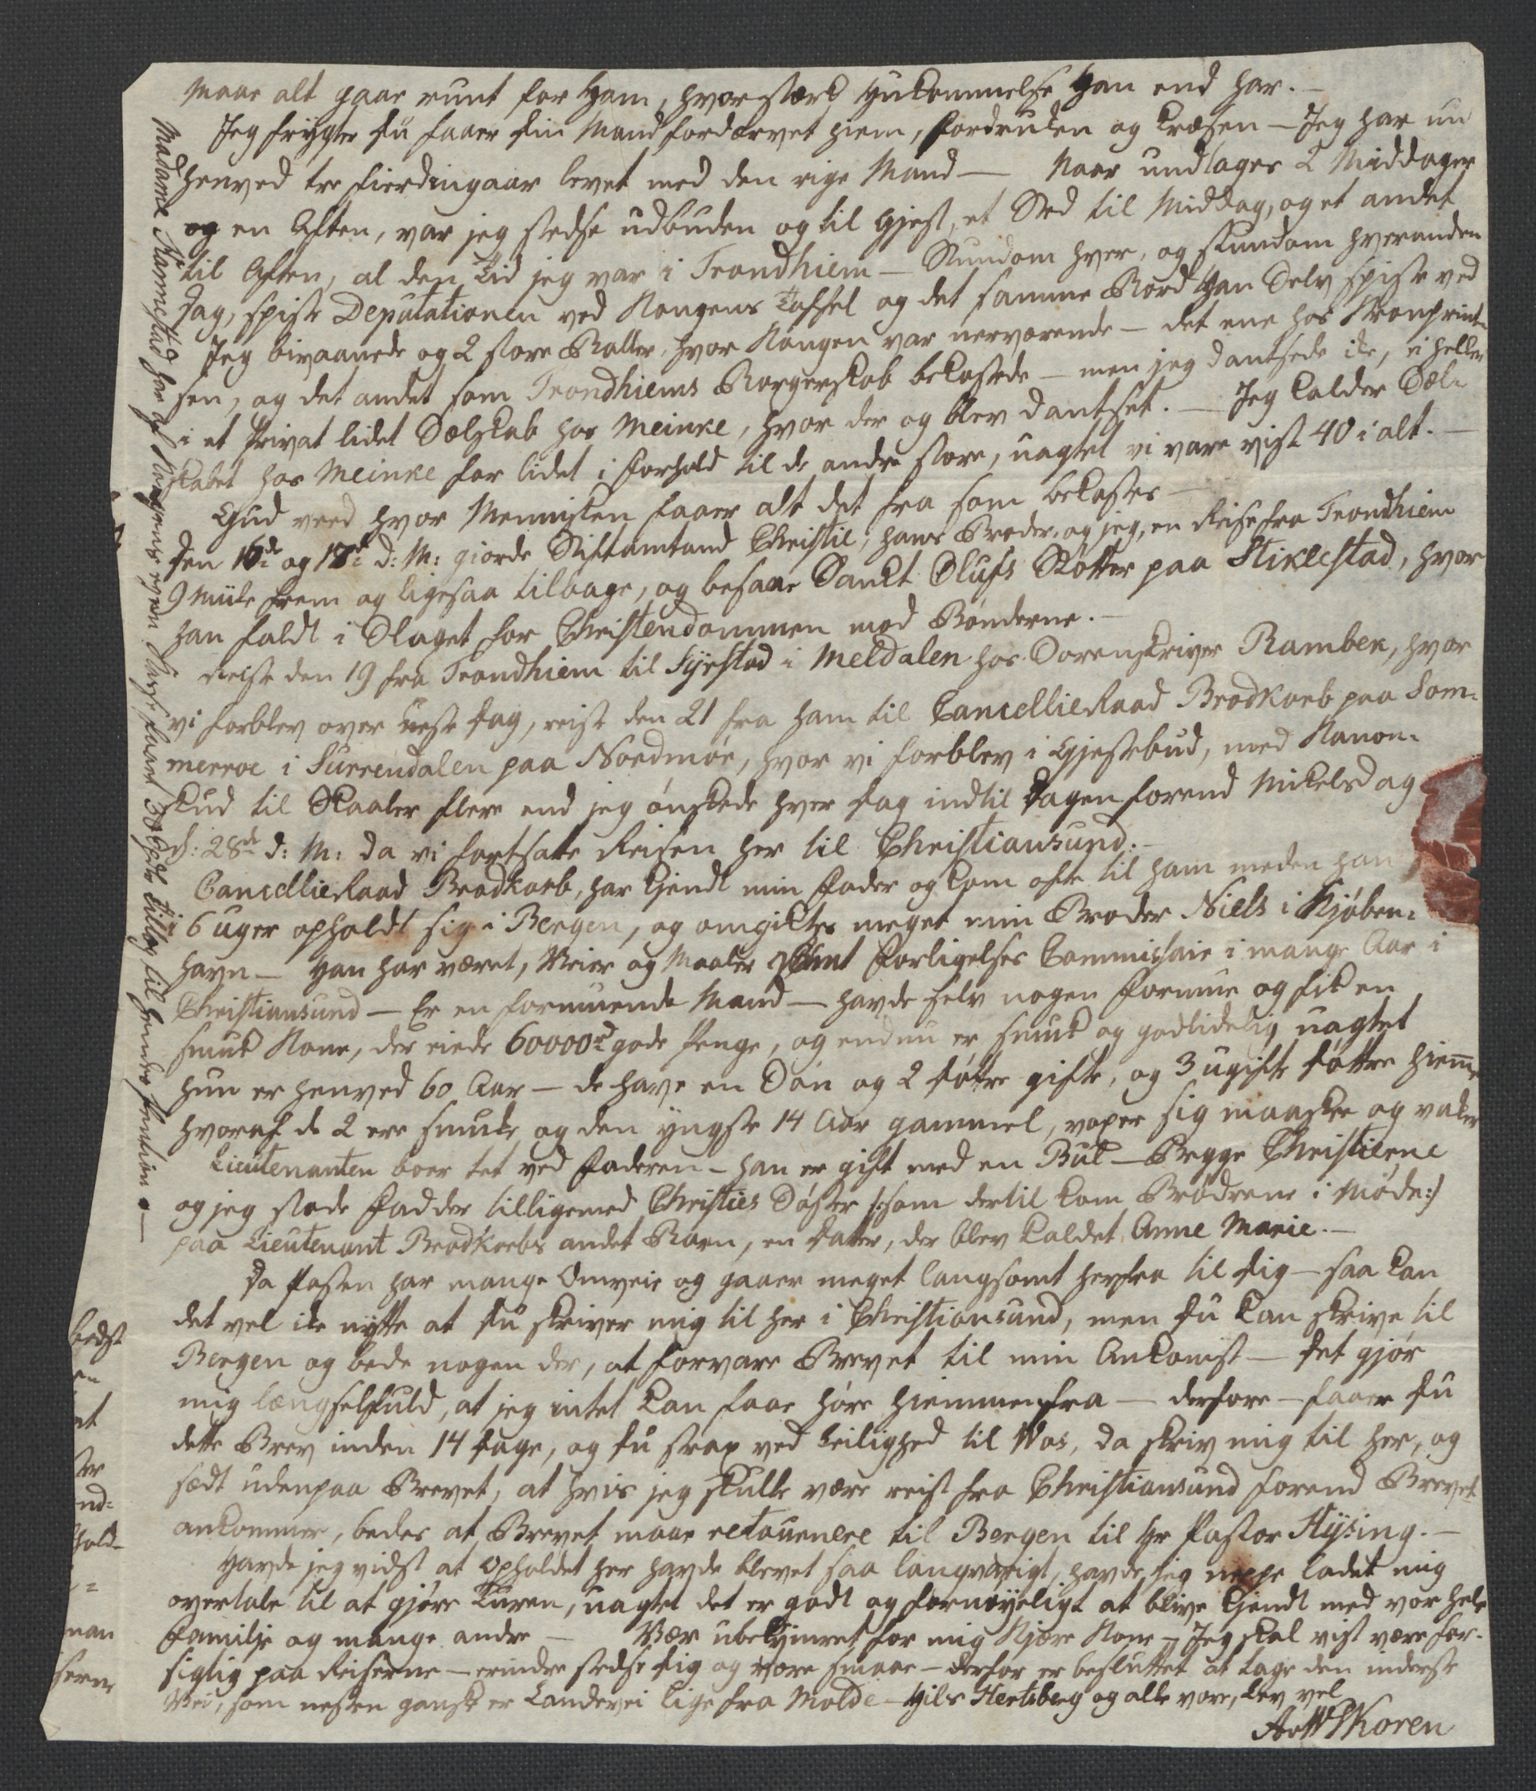 maae alt gaae rundt for Ham, hvor stærk Hukommelse Han end har. –
Jeg frygter Du faaer Din Mand fordærvet hiem, fordrukken og kræsen – Jeg har nu
henved tre fierdingaar levet med den rige Mand – Naar undtages 2 Middager
og en Aften, var jeg stedse udbuden og til Gjest, et Sted til Middag, og et andet
til Aften, al den Tid jeg var i Trondhiem – Sundom hver, og stundom hveranden
Dag, spiste Deputationen ved Kongens Taffel og det samme Bord Han Selv spiste ved
Jeg bivaanede og 2 store Baller, hvor Kongen var nerværende – det ene hos Kronprint-
sen, og det andet som Trondhiems Borgerskab bekostede – men jeg dantsede ike, ei heller
i et Privat lidet Selskab hos Meinke, hvor der og blev dantset. – Jeg kalder Sel-
skabet hos Meinke for lidet i forhold til de andre store, uagtet vi vare vist 40 i alt. –
Gud veed hvor Mennisken faaer alt det fra som bekostes –
Den 16de og 17de d: M: giorde Stiftamtmand Christie, hans Broder, og jeg, en Reise fra Trondhiem
9 Miile frem og ligesaa tilbage, og besaae Sankt Olufs Støtte paa Stiklestad, hvor
han faldt i Slaget for Christendommen mod Bønderne. –
Reiste den 19 fra Trondhiem til Syrstad i Meldalen hos Sorenskriver Rambek, hvor
vi forblev over neste Dag, reiste den 21 fra ham til CancellieRaad Brodkorb paa Som-
merroe i Surrendalen paa Nordmør, hvor vi forblev i Gjestebud, med Kanon-
skud til Skaaler flere end jeg ønskede hver Dag indtil Dagen forend Mikelsdag
d: 28de d: M: da vi fortsatte Reisen her til Christiansund. –
CancellieRaad Brodkorb, har kjendt min Fader og kom ofte til ham meden han
i 6 uger opholdt sig i Bergen, og omgiktes meget min Broder Niels i Kjøben-
havn – Han har været, Veier og Maaler samt Forligelses Commissair i mange Aar i
Christiansund – Er en formuende Mand – havde selv nogen Formue og fik en
smuk Kone, der eiede 60000 rd gode Penge, og endnu er smuk og godlidelig uagtet
hun er henved 60 Aar – de have en Søn og 2 Døttre gifte, og 3 ugifte Døttre hiemme
hvoraf de 2 ere smukke og den yngste 14 Aar gammel, voxer sig maaskee og vakker
Lieutenanten boer tet ved Faderen – han er gift med en Bul – Begge Christierne
og jeg stode Fadder tilligemed Christies Søster /: som dertil kom Brødrene i Møde :/
paa Lieutenant Brodkorbs andet Barn, en Datter, der blev kaldet Anne Marie. –
Da Posten har mange Omveie og gaaer meget langsomt herfra til Dig – saa kan
det vel ike nytte at Du skriver mig til her i Christiansund, men Du kan skrive til
Bergen og bede nogen der, at forvare Brevet til min Ankomst – Det gjør
mig længselfuld, at jeg intet kan faae høre hiemmenfra – derfore – faaer Du
dette Brev inden 14 Dage, og Du strax ved Leilighed til Vos, da skriv mig til her, og
sædt udenpaa Brevet, at hvis jeg skulle være reist fra Christiansund forend Brevet
ankommer, bedes at Brevet maae retournere til Bergen til Hr Pastor Hysing. –
Havde jeg vidst at Opholdet her havde blevet saa langvarigt, havde jeg neppe ladet mig
overtale til at gjøre Turen, uagtet det er godt og fornøyeligt at blive kjendt med vor hele
Familje og mange andre – Vær ubekymret for mig Kjære Kone – Jeg skal vist være for-
sigtig paa Reiserne – erindre stedse Dig og vore smaae – derfor er besluttet at tage den inderste
Vei, som nesten ganske er Landevei lige fra Molde – Hils Hertzberg og alle vore, Lev vel
AvWSKoren
Madame Hammestad har af Kongens egen Casse faaet 30 Spd
til hendes Pension. –
bedst
en
at
ter
nd-
hold-
man
serne